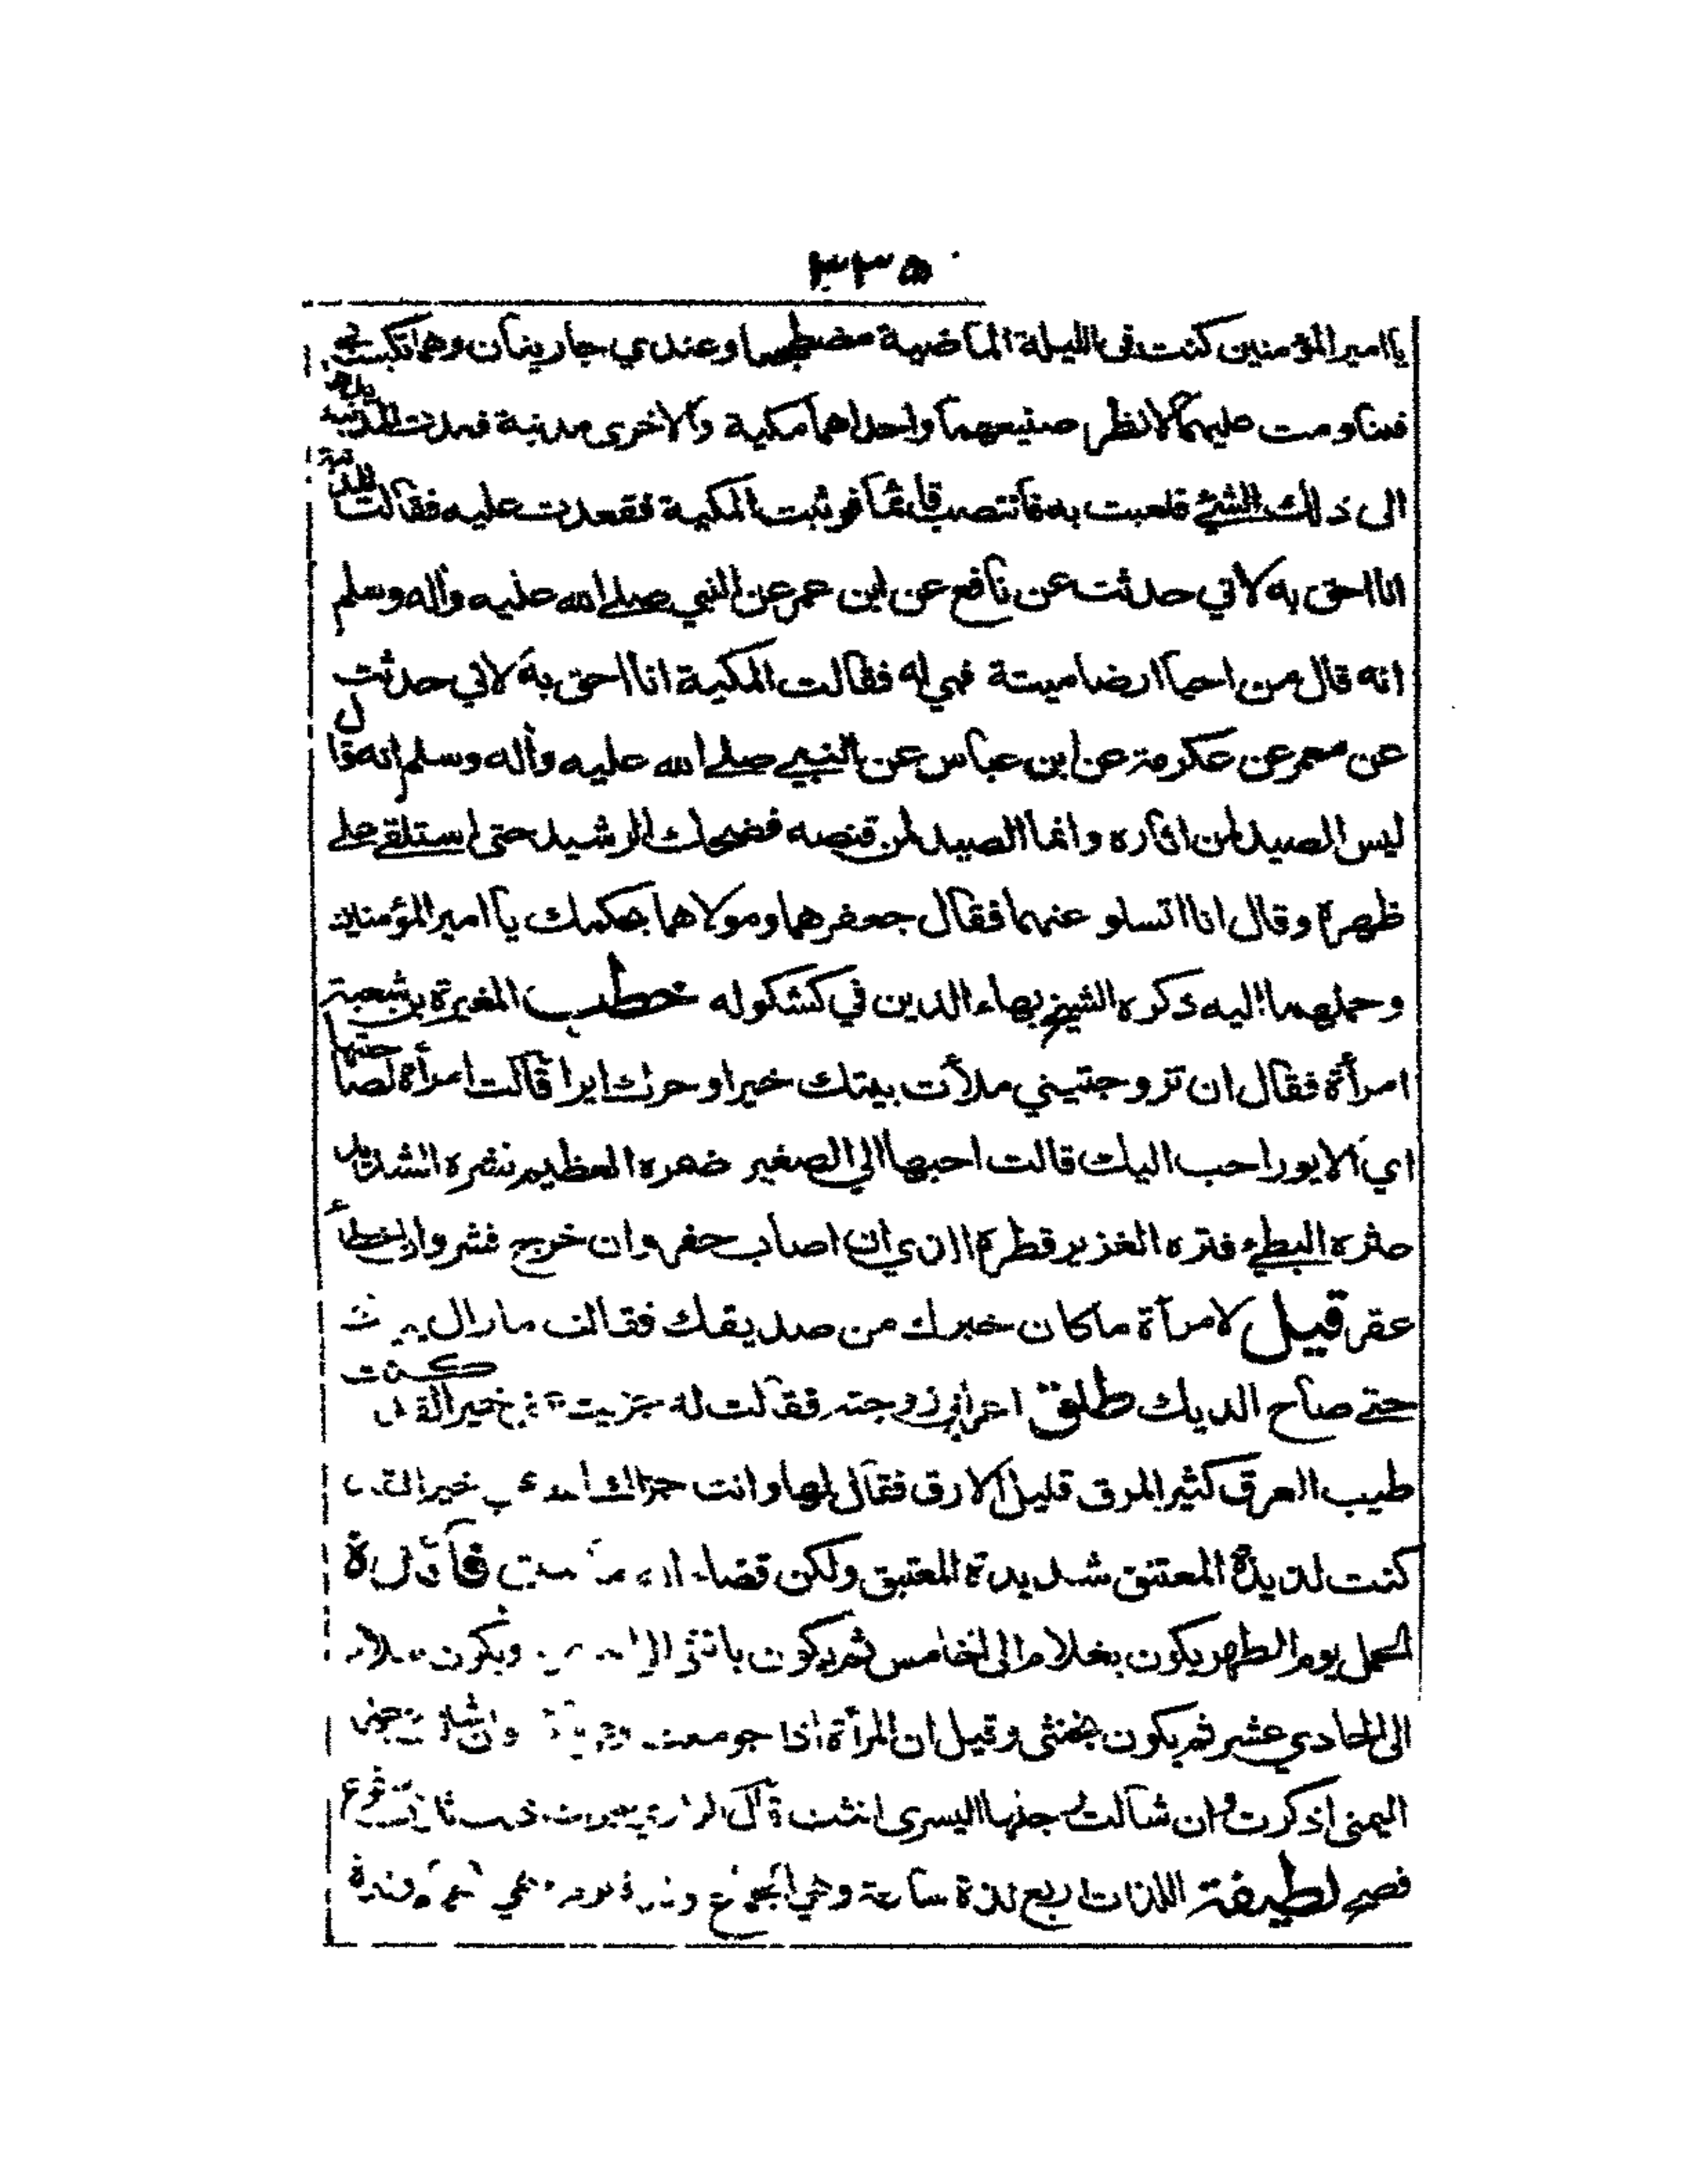 ٣٣٥
يا امير المؤمنين كنت فى الليلة الماضية مضطجعا وعندي جاريتان وهما تكبسانى
فتناومت عليهما لانظر صنيعهما واحداهما مكية والاخرى مدنية فمدت المدنية يدها
الى ذلك الشئ فلعبت به فانتصب قائما فوثبت المكية فقعدت عليه فقالت المدنية
انا احق به لاني حدثت عن نافع عن ابن عمر عن النبي صلى الله عليه وآله وسلم
انه قال من احيا ارضا ميتة فهي له فقالت المكية انا احق به لاني حدثت
عن معمر عن عكرمة عن ابن عباس عن النبي صلى الله عليه وآله وسلم انه قال
ليس الصيد لمن اثاره وانما الصيد لمن قنصه فضحك الرشيد حتى استلقى على
ظهره وقال انا اتسلو عنهما فقال جعفر هما ومولاهما بحكمك يا امير المؤمنين
وحملهما اليه ذكره الشيخ بهاء الدين في كشكوله خطب المغيرة بن شعبة
امرأة فقال ان تزوجتيني ملأت بيتك خيرا وحرك ايرا فقالت امرأة لصاحبتها
اي الايور احب اليك قالت احبها الي الصغير ضمره العظيم نشره الشديد
عثره البطىء فتره الغزير قطره الذي ان اصاب حفر وان خرج قشر وان اخطأ
عقر قيل لامرأة ما كان خبرك من صديقك فقالت ما زال
حتى صاح الديك طلق اعرابي زوجته فقالت له جزيت خيرا لقد كنت
طيب العرق كثير المرق قليل الارق فقال لها وانت جزاك خيرا لقد
كنت لذيذة المعتنق شديدة المعتبق ولكن قضاء فائدة
الحمل يوم الطهر يكون بغلام الى الخامس ثم يكون بانثى الى ويكون
الى الحادي عشر ثم يكون بخنثى وقيل ان المرأة اذا جومعت وان شالت
اليمنى اذكرت وان شالت رجلها اليسرى انثت
فصح لطيفة اللذات اربع لذة ساعة وهي الجماع ولذة يوم